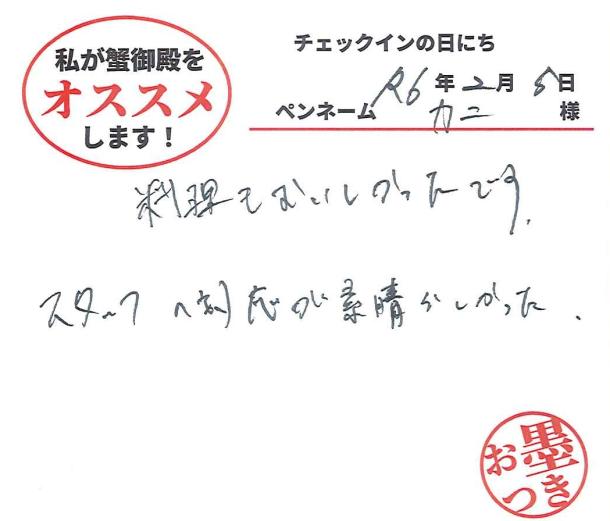 私が蟹御殿を
オススメ
します！
チェックインの日にち
R6年2月8日
ペンネーム カニ 様
料理もおいしかったです。
スタッフの対応が素晴らしかった。
お墨つき